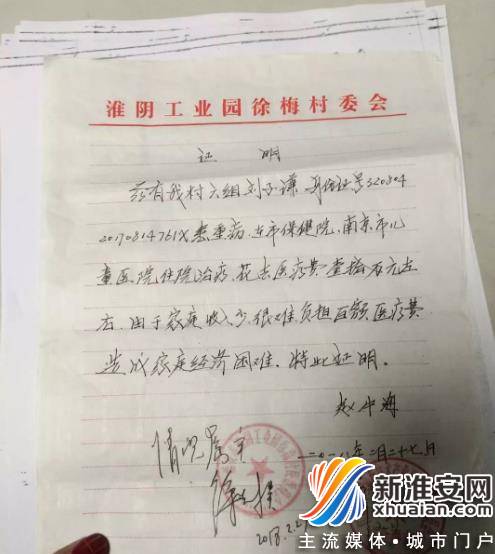 淮阴工业园徐梅村委会
证 明
兹有我村六组刘子谦 身份证号320804
20170814761X患重病,在市保健院,南京市儿
童医院住院治疗,花去医疗费 万元左
右,由于家庭收入少,很难负担巨额医疗费
造成家庭经济困难。特此证明。
情况属实
二〇一八年二月二十七日
2018.2.27
新淮安网
xhuaian.com
主流媒体·城市门户